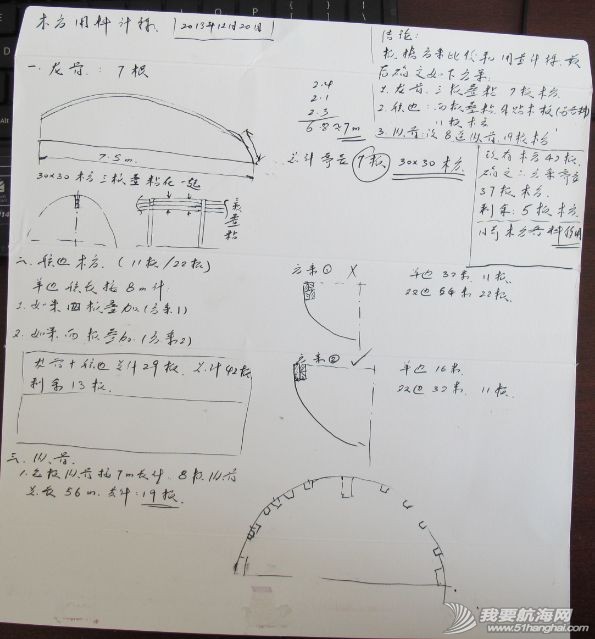 木方用料计算
2013年12月20日
结论:
根据方案比较和用量计算,最
后确定如下方案:
1. 龙骨:三根叠粘 7根木方
2. 舷边:两根叠粘
11根木方
3. 肋骨:设8道肋骨,19根木方
一、龙骨: 7根
7.5m
2.4
2.1
2.3
6.8≈7m
总计需要 7根 30x30 木方
30x30 木方 三根叠粘在一起
三根叠粘
设有木方42根
确定之方案需要
37根木方
剩余:5根木方
二、舷边木方 (11根/22根)
单边舷长按8m计
1. 如果四根叠加(方案1)
2. 如果两根叠加(方案2)
方案① X
单边 32米 11根
双边 64米 22根
方案② ✓
单边 16米
双边 32米 11根
龙骨+舷边 总计29根 总计42根
剩余13根
三、肋骨
1. 每根肋骨按7m长计 8根肋骨
总长56m 共计:19根
我要航海网
www.51hanghai.com